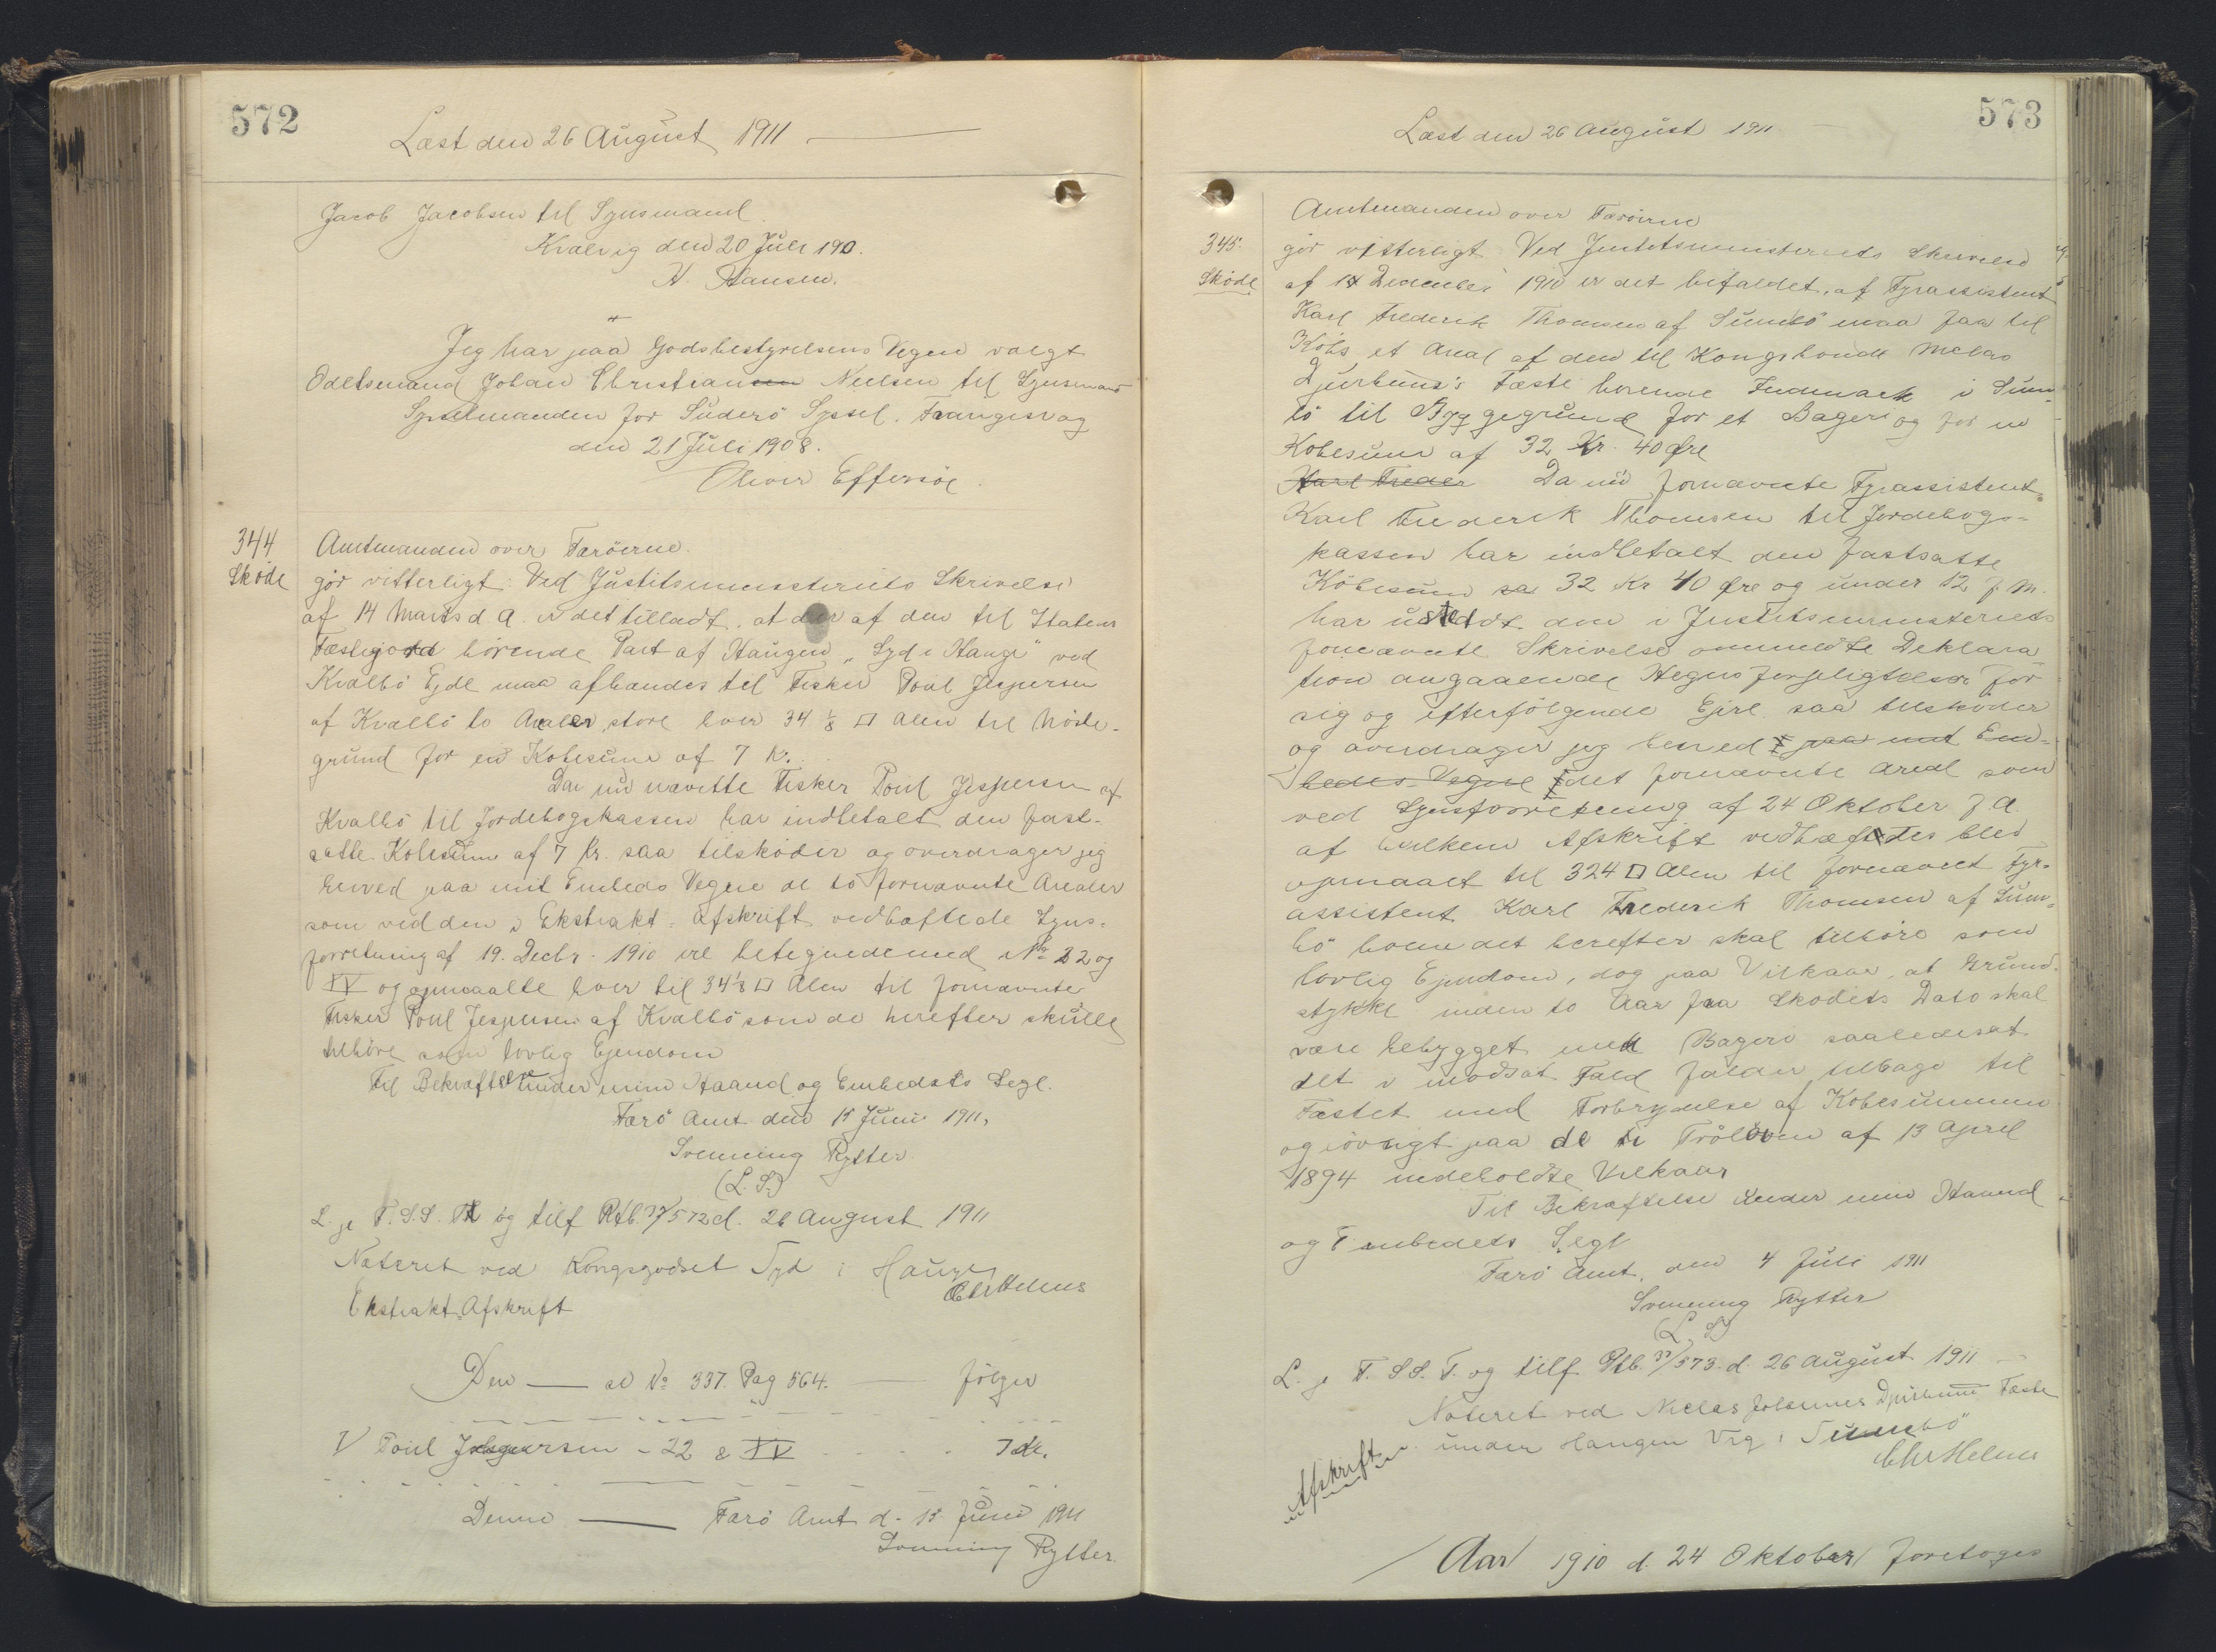 572
Læst den 26 August 1911
Jacob Jacobsen til Synsmand.
Kvalvig den 20 Juli 190.
N. Hansen.
Jeg har paa Godsbestyrelsens Vegne valgt
Odelsmand Johan Christiansen Nielsen til Synsmand
Sysselmanden for Süderö Syssel. Frangisvag
den 21 Juli 1908.
Oliver Effersöe.
344
Sköde
Amtmanden over Færöerne.
gör vitterligt: Ved Justitsministeriets Skrivelse
af 14 Marts d. A. er det tilladt, at der af den til Statens
Fæstejord hörende Part af Haugen "Syd i Hauge" ved
Kvalbö Ejde maa afhandes til Fisker Poul Jespersen
af Kvalbö to Arealer, store hver 34 1/8 □ Alen til Nöste-
grund for en Köbesum af 7 Kr.
Da nu nævnte Fisker Poul Jespersen af
Kvalbö til Jordebogskassen har indbetalt den fast-
satte Köbesum af 7 Kr. saa tilsköder og overdrager jeg
herved paa mit Embeds Vegne de to fornævnte Arealer
som ved den i Ekstrakt-Afskrift vedhæftede Syns-
forretning af 19. Decbr. 1910 ere betegnede med No 22 og
IV og opmaalte hver til 34 1/8 □ Alen til fornævnte
Fisker Poul Jespersen af Kvalbö som de herefter skulle
tilhöre som lovlig Ejendom
Til Bekræftelse under min Haand og Embedets Segl.
Færö Amt den 15 Juni 1911,
Svenning Rytter.
(L. S.)
L. je F. S. S. Tt og tilf Rtb. 37/572 d. 26 August 1911
Noteret ved Kongsgodset Syd i Hauge
Chr Helms
Ekstrakt Afskrift
Den — al No 337. Pag 564. — fölger
V Poul Jespersen - 22 & IV - - - - 7 Kr.
Denne — Færö Amt d. 15 Juni 1911
Svenning Rytter.
573
Læst den 26 August 1911
345.
Sköde
Amtmanden over Færöerne
gör vitterligt Ved Justitsministeriets Skrivelse
af 14 December 1910 er det befaldet, af Fyrassistent
Karl Frederik Thomsen af Sumbö maa faa til
Köbs et Areal af den til Kongsbonde Niclas
Djurhuus's Fæste hörende Indmark i Sum-
bö til Byggegrund for et Bageri og for en
Köbesum af 32 Kr. 40 Øre
Karl Freder Da nu fornævnte Fyrassistent
Karl Frederik Thomsen til Jordebogs-
kassen har indbetalt den fastsatte
Köbesum sa 32 Kr 40 Øre og under 12 f. M.
har udstedt den i Justitsministeriets
fornævnte Skrivelse ommeldte Deklara
tion angaaende Hegnsforpligtelser for
sig og efterfölgende Ejere saa tilsköder
og overdrager jeg herved paa mit Em-
bedes Vegne det fornævnte Areal som
ved Synsforretning af 24 Oktober f. A.
af hvilken Afskrift vedhæftes blev
opmaalt til 324 □ Alen til fornævnt Fyr-
assistent Karl Frederik Thomsen af Sum-
bö hvem det herefter skal tilhöre som
lovlig Ejendom, dog paa Vilkaar, at Grund-
stykke inden to Aar fra Sködets Dato skal
være bebygget med Bageri saaledes at
det i modsat Fald falder tilbage til
Fæstet med Forbrydelse af Köbesummen
og iövrigt paa de i Prölöven af 13 April
1894 indeholdte Vilkaar
Til Bekræftelse under min Haand
og Embedets Segl
Færö Amt, den 4 Juli 1911
Svenning Rytter
(L. S.)
L. je F. S. S. T. og tilf. Ptb. 37/573. d 26 August 1911
Noteret ved Niclas Johannes Djurhuus Fæste
under Haugen Vag i Sumbö
Chr Helms
Afskrift
Aar 1910 d. 24 Oktober foretoges